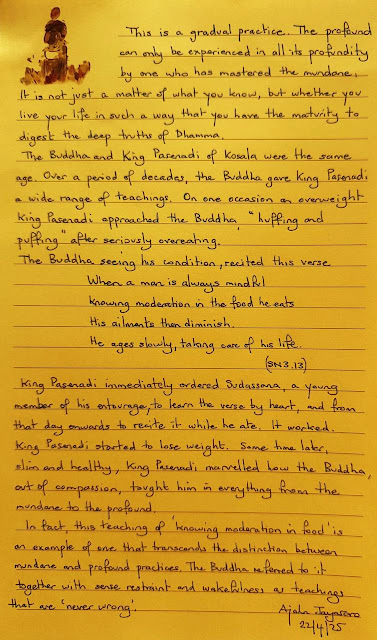 This is a gradual practice. The profound
can only be experienced in all its profundity
by one who has mastered the mundane.
It is not just a matter of what you know, but whether you
live your life in such a way that you have the maturity to
digest the deep truths of Dhamma.
The Buddha and King Pasenadi of Kosala were the same
age. Over a period of decades, the Buddha gave King Pasenadi
a wide range of teachings. On one occasion an overweight
King Pasenadi approached the Buddha, "huffing and
puffing" after seriously overeating.
The Buddha seeing his condition, recited this verse
When a man is always mindful
Knowing moderation in the food he eats
His ailments then diminish.
He ages slowly, taking care of his life.
(SN3.13)
King Pasenadi immediately ordered Sudassana, a young
member of his entourage, to learn the verse by heart, and from
that day onwards to recite it while he ate. It worked.
King Pasenadi started to lose weight. Some time later,
slim and healthy, King Pasenadi marvelled how the Buddha,
out of compassion, taught him in everything from the
mundane to the profound.
In fact, this teaching of 'knowing moderation in food' is
an example of one that transcends the distinction between
mundane and profound practices. The Buddha referred to it
together with sense restraint and wakefulness as teachings
that are 'never wrong'.
Ajahn Jayasaro
22/4/25